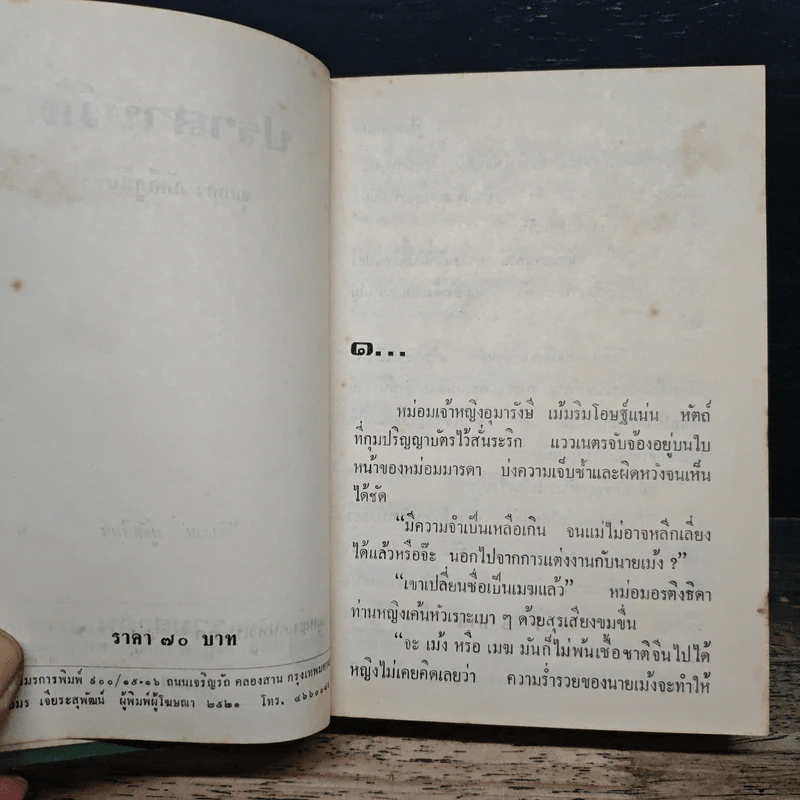 ราคา ๗๐ บาท
มิตรการพิมพ์ ๙๐๐/๑๕-๑๖ ถนนเจริญรัถ คลองสาน กรุงเทพมหา
เจียระสุพัฒน์ ผู้พิมพ์ผู้โฆษณา ๒๕๒๑ โทร.
๑...
หม่อมเจ้าหญิงอุมารังษี เม้มริมโอษฐ์แน่น หัตถ์
ที่กุมปริญญาบัตรไว้สั่นระริก แววเนตรจับจ้องอยู่บนใบ
หน้าของหม่อมมารดา บ่งความเจ็บช้ำและผิดหวังจนเห็น
ได้ชัด
“มีความจำเป็นเหลือเกิน จนแม่ไม่อาจหลีกเลี่ยง
ได้แล้วหรือจ๊ะ นอกไปจากการแต่งงานกับนายเม้ง ?”
“เขาเปลี่ยนชื่อเป็นเมฆแล้ว” หม่อมอรติงธิดา
ท่านหญิงเค้นหัวเราะเบา ๆ ด้วยสุรเสียงขมขื่น
“จะ เม้ง หรือ เมฆ มันก็ไม่พ้นเชื้อชาติจีนไปได้
หญิงไม่เคยคิดเลยว่า ความร่ำรวยของนายเม้งจะทำให้